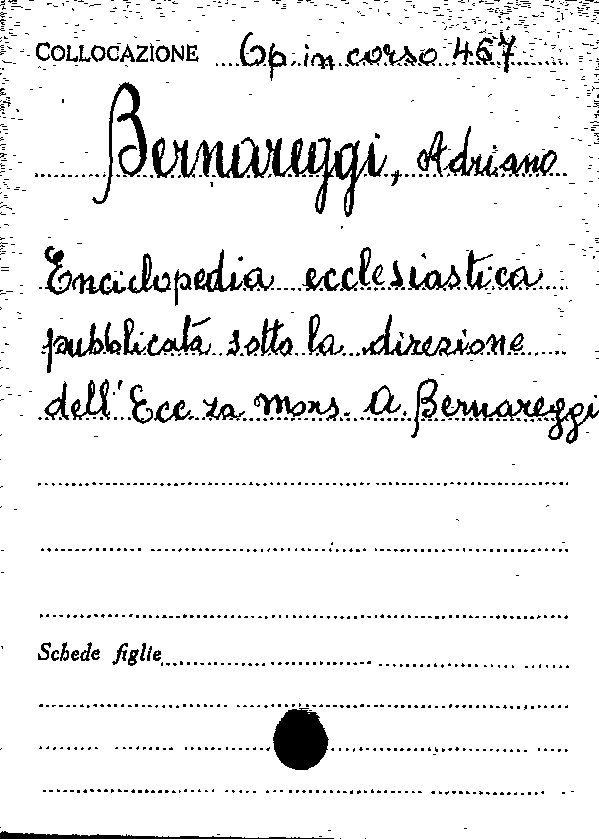 COLLOCAZIONE Op. in corso 467
Bernareggi, Adriano
Enciclopedia ecclesiastica
pubblicata sotto la direzione
dell'Ecc.za Mons. A. Bernareggi
Schede figlie